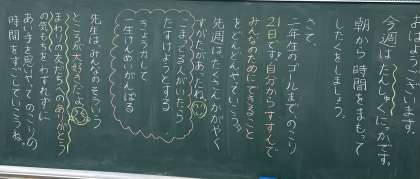 おはようございます。
今週はたんしゅくにっかです。
朝から時間をまもって
したくをしましょう。
さて、
二年生のゴールまで、のこり
21日です。自分からすすんで
みんなのためにできること
をどんどんやっていこう。
先週はたくさんかがやく
すがたがあったね。
こまってる人がいたら
たすけようとする
きょう力して
一生けんめいがんばる
先生はみんなのそういう
ところが大好きだよ。
まわりの友だちへのありがとう
の気もちをわすれずに
みんなを思いやってのこりの
時間をすごしていこうね。